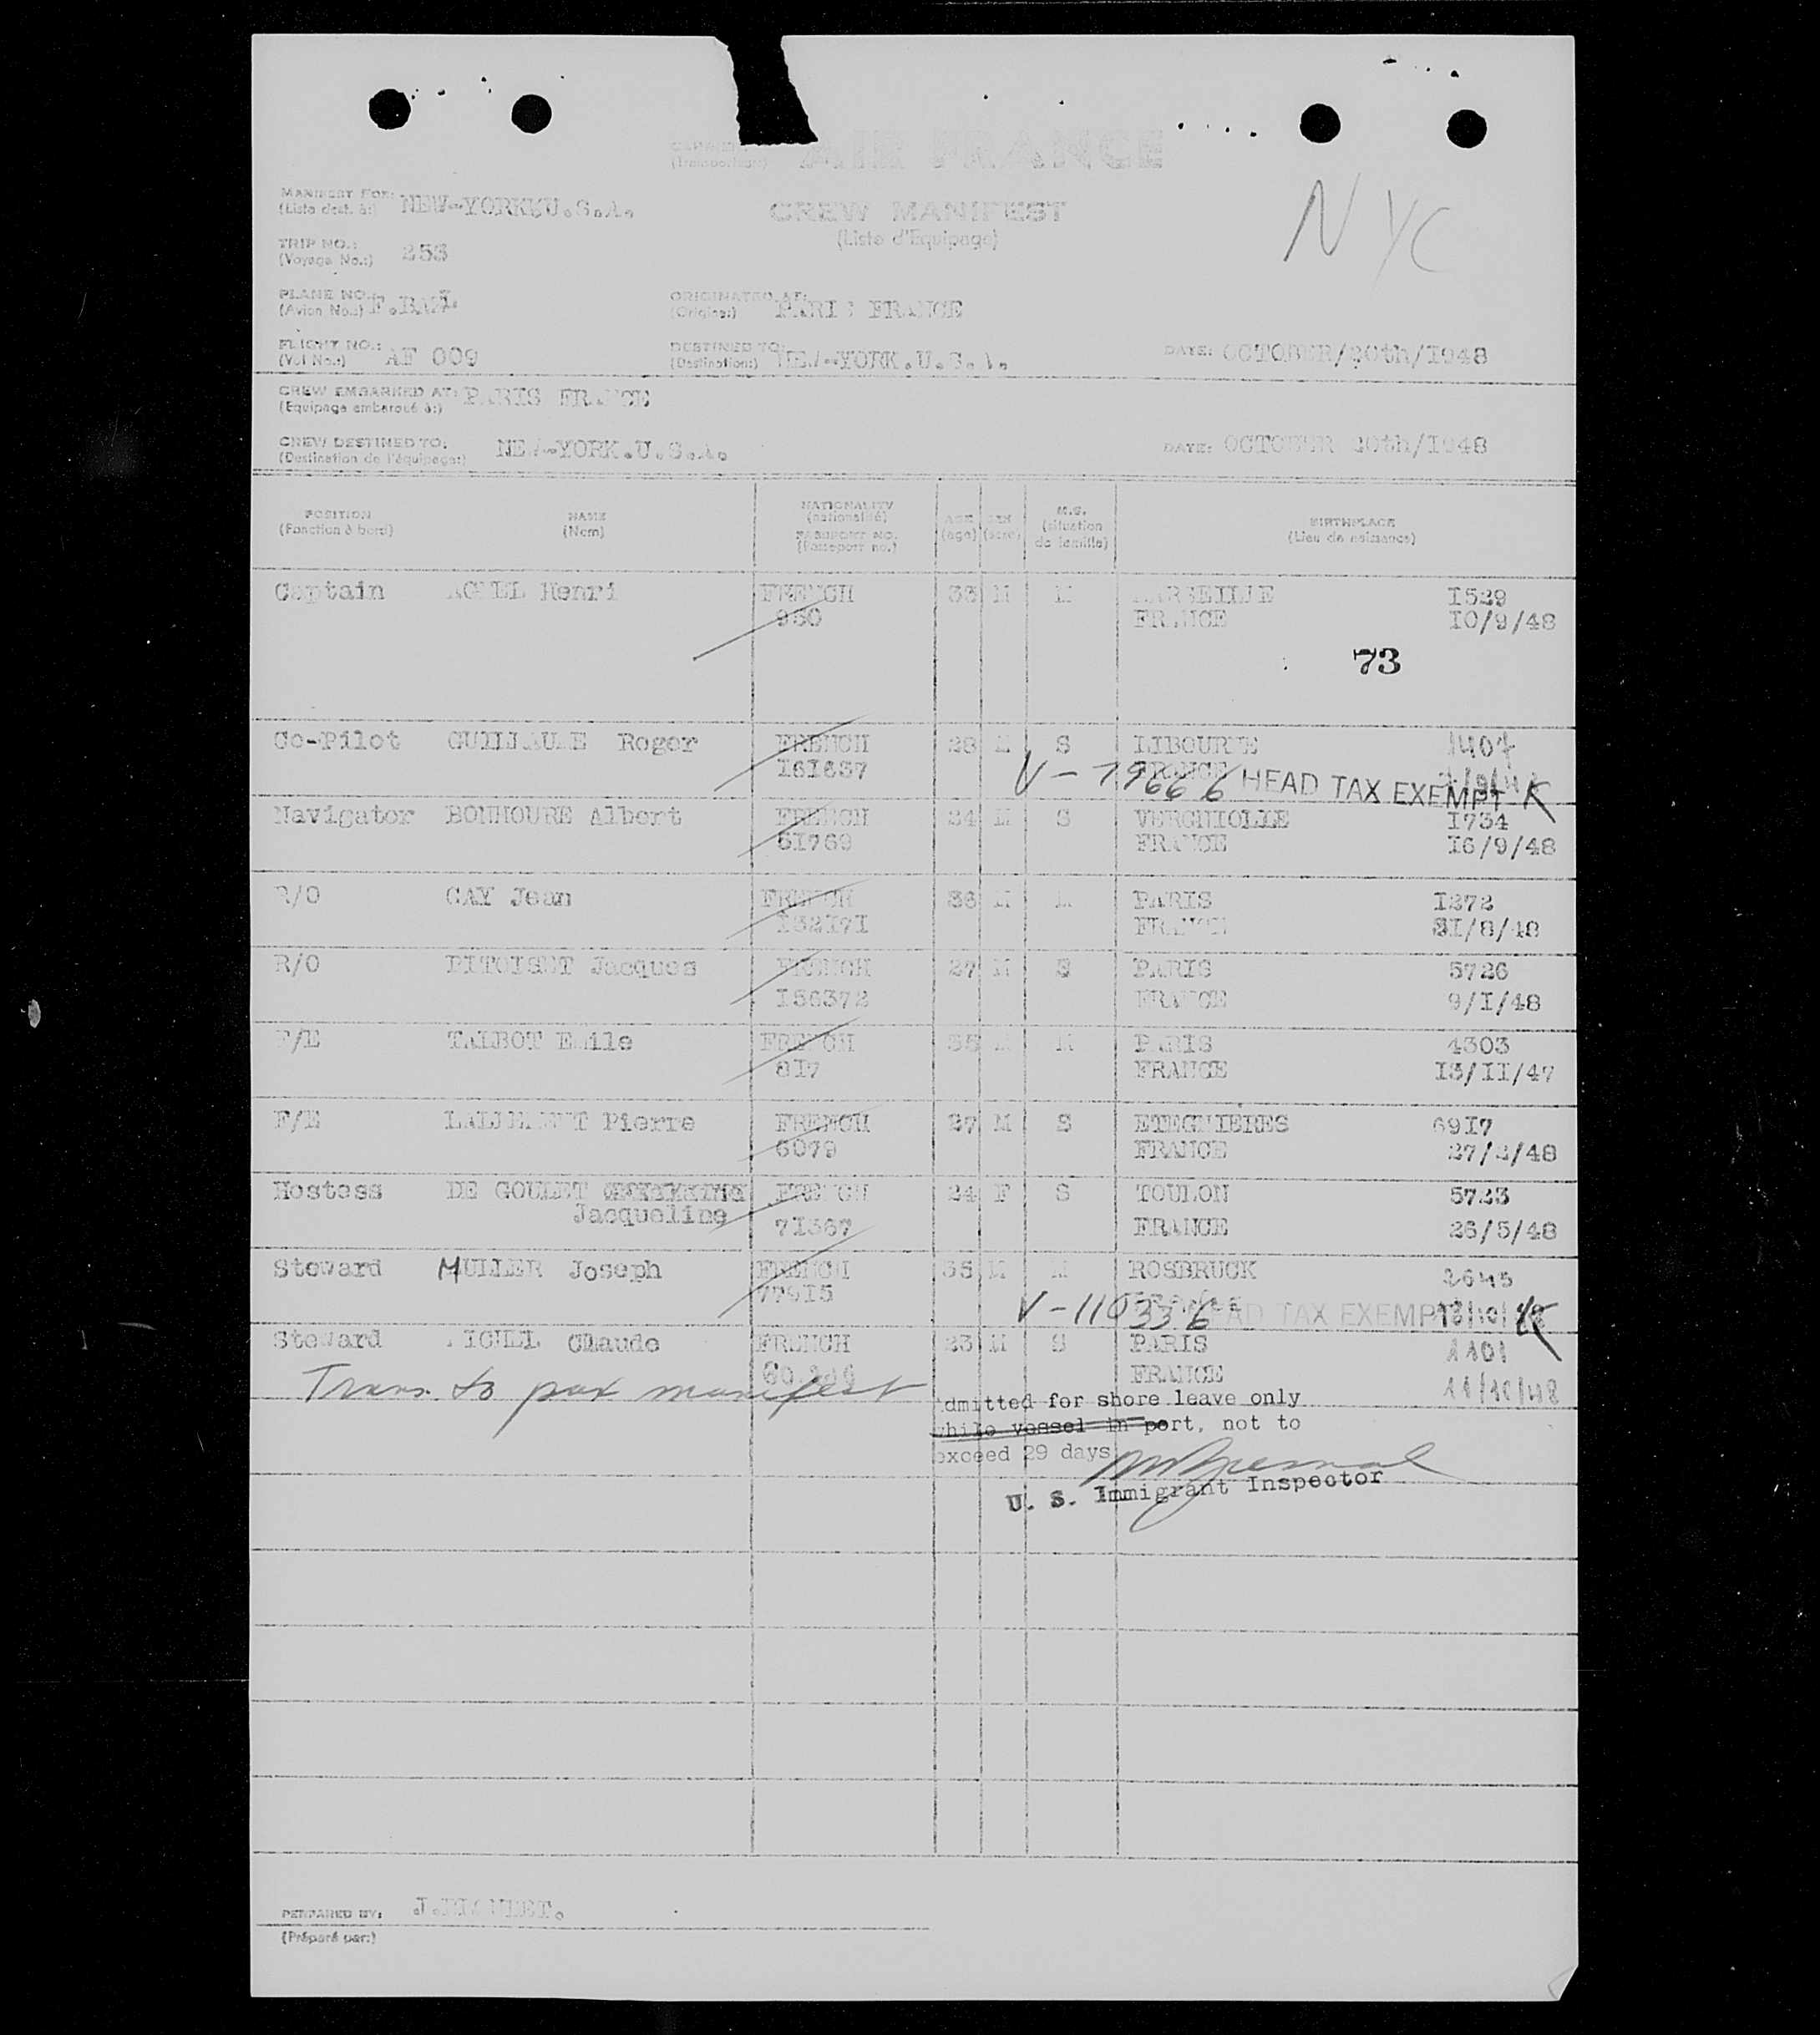 AIR FRANCE
(Transporteur)
MANIFEST FOR: NEW-YORK U.S.A.
(Liste dest. à:)
CREW MANIFEST
(Liste d'Equipage)
NYC
TRIP NO.: 253
(Voyage No.:)
PLANE NO.:
(Avion No.:)
ORIGINATED AT: PARIS FRANCE
(Origine:)
FLIGHT NO.: AF 009
(Vol No.:)
DESTINED TO: NEW-YORK.U.S.A.
(Destination:)
DATE: OCTOBER/20th/I948
CREW EMBARKED AT: PARIS FRANCE
(Equipage embarqué à:)
CREW DESTINED TO: NEW-YORK.U.S.A.
(Destination de l'équipage:)
DATE: OCTOBER 20th/I948
POSITION NAME NATIONALITY AGE SEX M.S. BIRTHPLACE
(Fonction à bord) (Nom) (nationalité) (age) (sexe) (situation de famille) (Lieu de naissance)
PASSPORT NO.
(Passeport no.)
Captain Henri FRENCH 36 M M MARSEILLE I529
960 FRANCE I0/9/48
73
Co-Pilot GUILLAUME Roger FRENCH 28 M S LIBOURNE 1407
I6I637 V-79666 FRANCE HEAD TAX EXEMPT
Navigator BONHOURE Albert FRENCH 34 M S VERGNIOLLE I734
6I769 FRANCE I6/9/48
R/O GAY Jean FRENCH 36 M M PARIS I272
I32I7I FRANCE 3I/8/48
R/O PITOISET Jacques FRENCH 27 M S PARIS 5726
I56372 FRANCE 9/I/48
F/E TALBOT Emile FRENCH 35 M M PARIS 4303
8I7 FRANCE I3/II/47
F/E LALLEMENT Pierre FRENCH 27 M S ETEGNIERES 69I7
6079 FRANCE 27/2/48
Hostess DE GOULET FRENCH 24 F S TOULON 5723
Jacqueline 7I367 FRANCE 26/5/48
Steward MULLER Joseph FRENCH 35 M M ROSBRUCK 2645
779I5 V-110336 HEAD TAX EXEMPT
Steward Claude FRENCH 23 M S PARIS 1101
FRANCE 11/10/48
Trans to pax manifest
Admitted for shore leave only
while vessel in port, not to
exceed 29 days
U. S. Immigrant Inspector
PREPARED BY:
(Préparé par:)